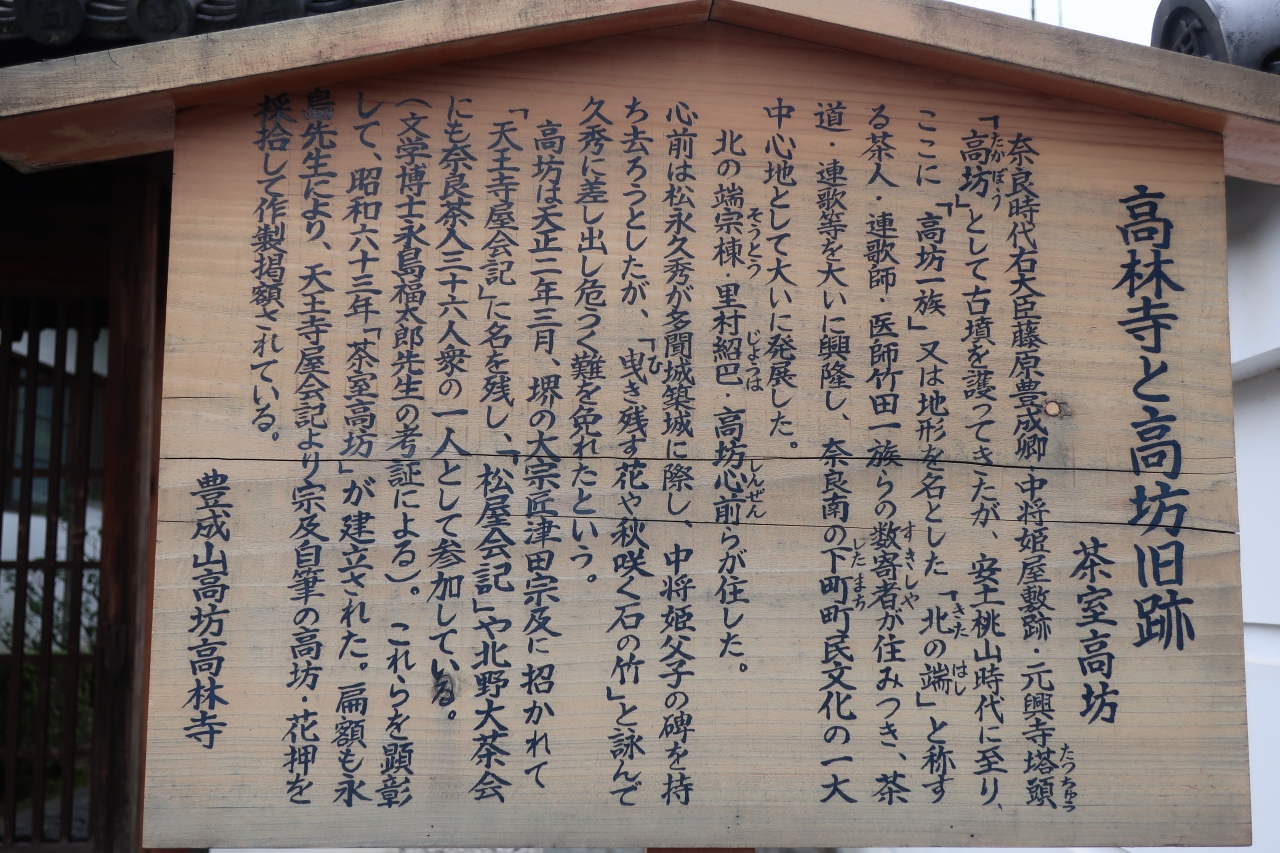 高林寺と高坊旧跡
茶室高坊
奈良時代右大臣藤原豊成卿・中将姫屋敷跡・元興寺塔頭
たっちゅう
「高坊」として古墳を護ってきたが、安土桃山時代に至り、
たかぼう
ここに「高坊一族」又は地形を名とした「北の端」と称す
きた はし
る茶人・連歌師・医師竹田一族らの数寄者が住みつき、茶
すきしゃ
道・連歌等を大いに興隆し、奈良南の下町町民文化の一大
したまち
中心地として大いに発展した。
北の端宗棟・里村紹巴・高坊心前らが住した。
そうとう じょうは しんぜん
心前は松永久秀が多聞城築城に際し、中将姫父子の碑を持
ち去ろうとしたが、「曳き残す花や秋咲く石の竹」と詠んで
ひ
久秀に差し出し危うく難を免れたという。
高坊は天正二年三月、堺の大宗匠津田宗及に招かれて
「天王寺屋会記」に名を残し、「松屋会記」や北野大茶会
にも奈良茶人三十六人衆の一人として参加している。
(文学博士永島福太郎先生の考証による)。これらを顕彰
して、昭和六十三年「茶室高坊」が建立された。扁額も永
島先生により、天王寺屋会記より宗及自筆の高坊・花押を
採拾して作製掲額されている。
豊成山高坊高林寺